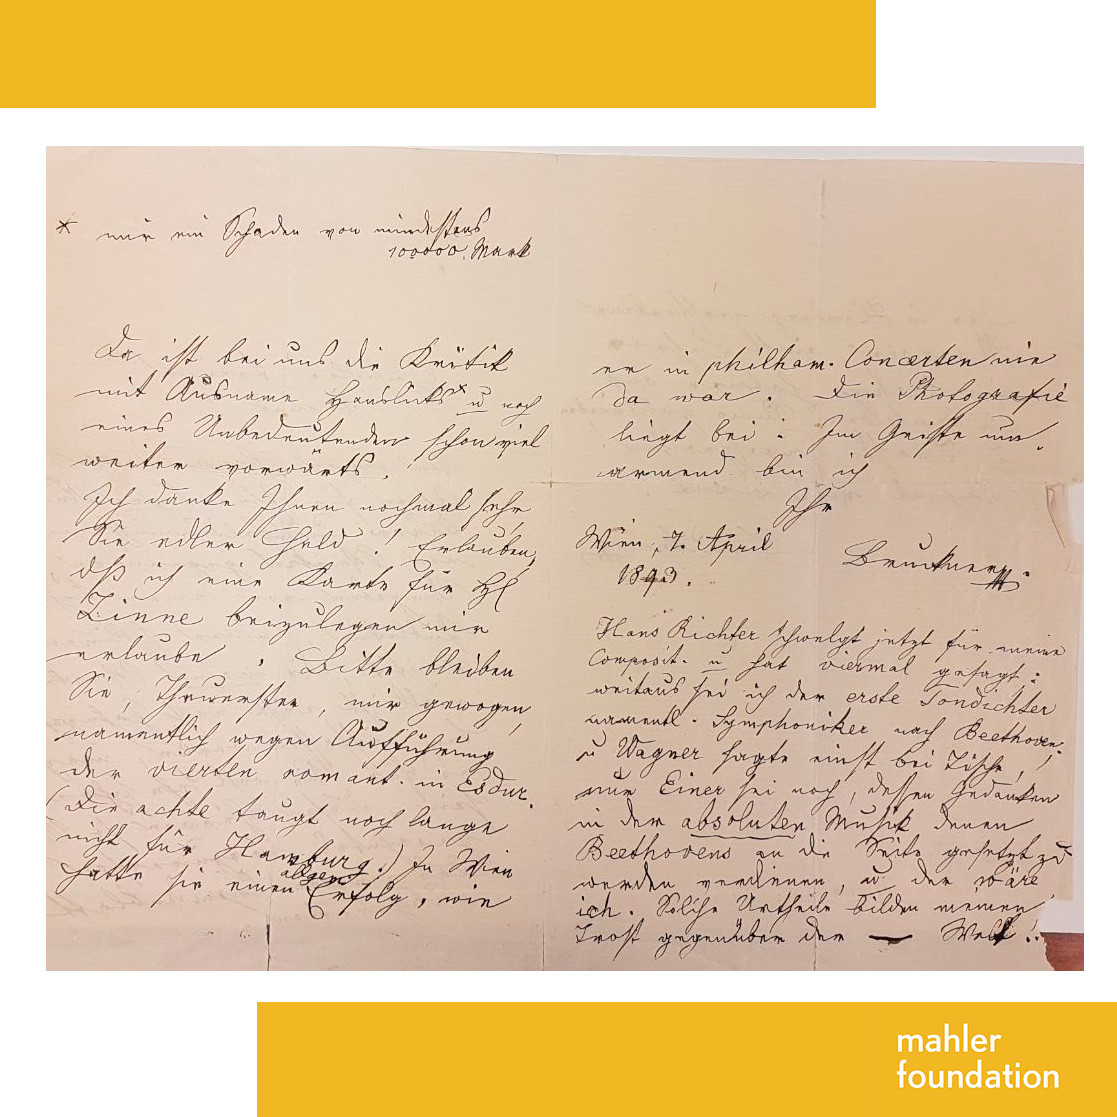 * mir ein Schaden von mindestens
100000. Mark
Da ist bei uns die Kritik
mit Ausname Hanslicks x u noch
eines Unbedeutenden schon viel
weiter vorwärts.
Ich danke Ihnen nochmal sehr
Sie edler Held! Erlauben,
dß ich eine Karte für H
Zinne beizulegen mir
erlaube. Bitte bleiben
Sie, Theuerster, mir gewogen,
namentlich wegen Aufführung
der vierten romant. in Esdur.
(Die achte taugt noch lange
nicht für Hamburg.) In Wien
hatte sie einen Erfolg, wie
er in philham. Concerten nie
da war. Die Photografie
liegt bei. Im Geiste um-
armend bin ich
Ihr
Wien, 7. April
1893.
Bruckner.
Hans Richter schwelgt jetzt für meine
Composit. u hat viermal gesagt:
weitaus sei ich der erste Tondichter
namentl. Symphoniker nach Beethoven;
u Wagner sagte einst bei Tische,
nur Einer sei noch, dessen Gedanken
in der absoluten Musik denen
Beethovens an die Seite gesetzt zu
werden verdienen, u. der wäre
ich. Solche Urtheile bilden meinen
Trost gegenüber der — Welt!
mahler
foundation